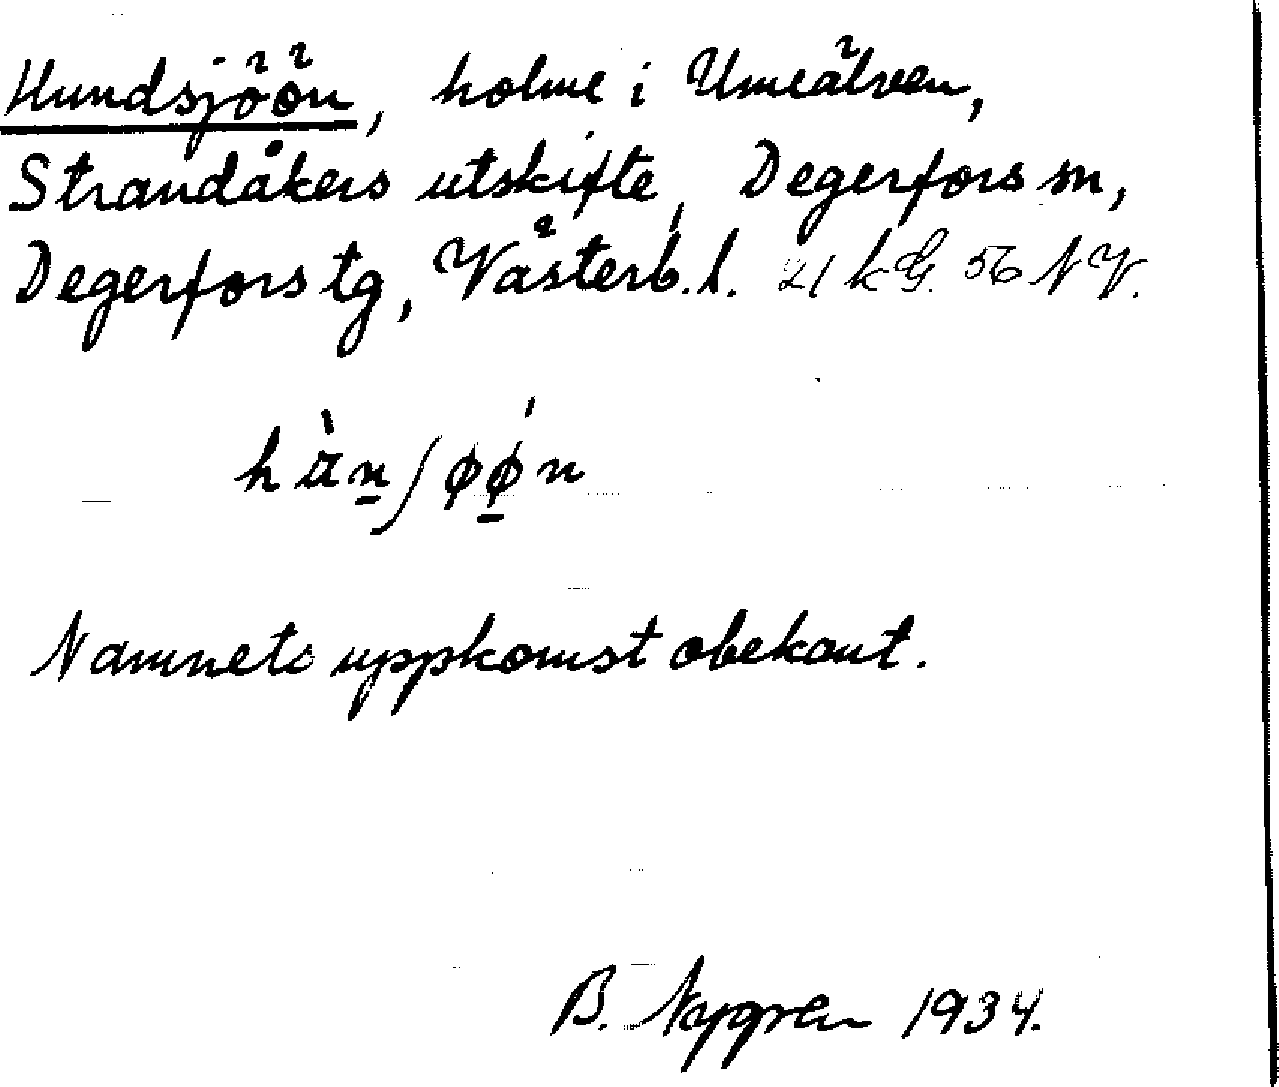 Hundsjöön, holme i Umeälven,
Strandåkers utskifte, Degerfors sn,
Degerfors tg, Västerb. l. 21 k G. 56 N V.
Namnets uppkomst obekant.
B. Nygren 1934.